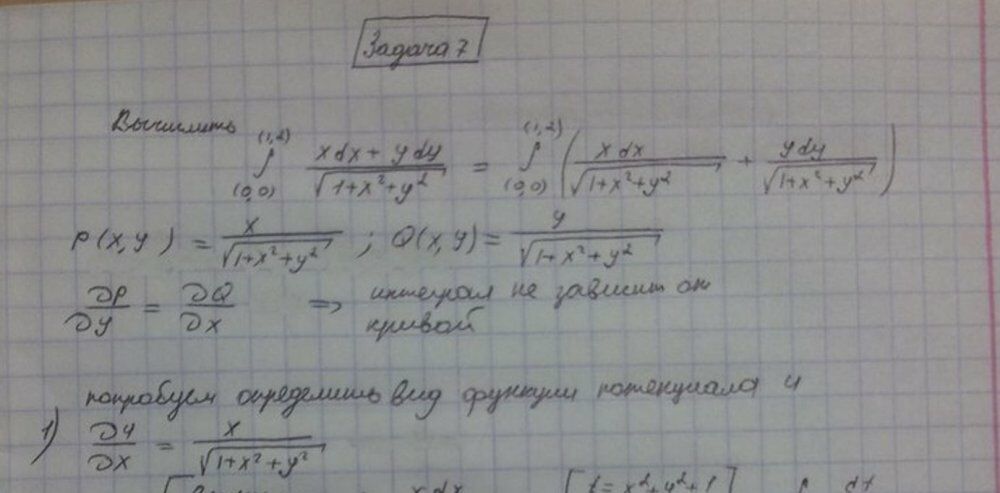 Задача 7
Вычислить
∫_(0,0)^(1,2) (x dx + y dy)/√(1+x²+y²) = ∫_(0,0)^(1,2) (x dx/√(1+x²+y²) + y dy/√(1+x²+y²))
P(x,y) = x/√(1+x²+y²) ; Q(x,y) = y/√(1+x²+y²)
∂P/∂y = ∂Q/∂x ⇒ интеграл не зависит от
кривой
попробуем определить вид функции потенциала u
1) ∂u/∂x = x/√(1+x²+y²)
x dx [t = x²+y²+1] ∫ dt